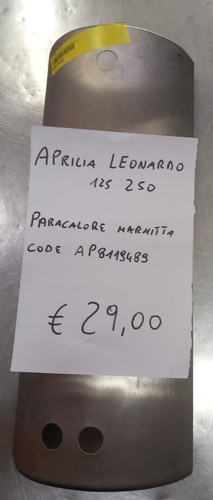 APRILIA LEONARDO
125 250
PARACALORE MARMITTA
CODE AP8119489
€ 29,00